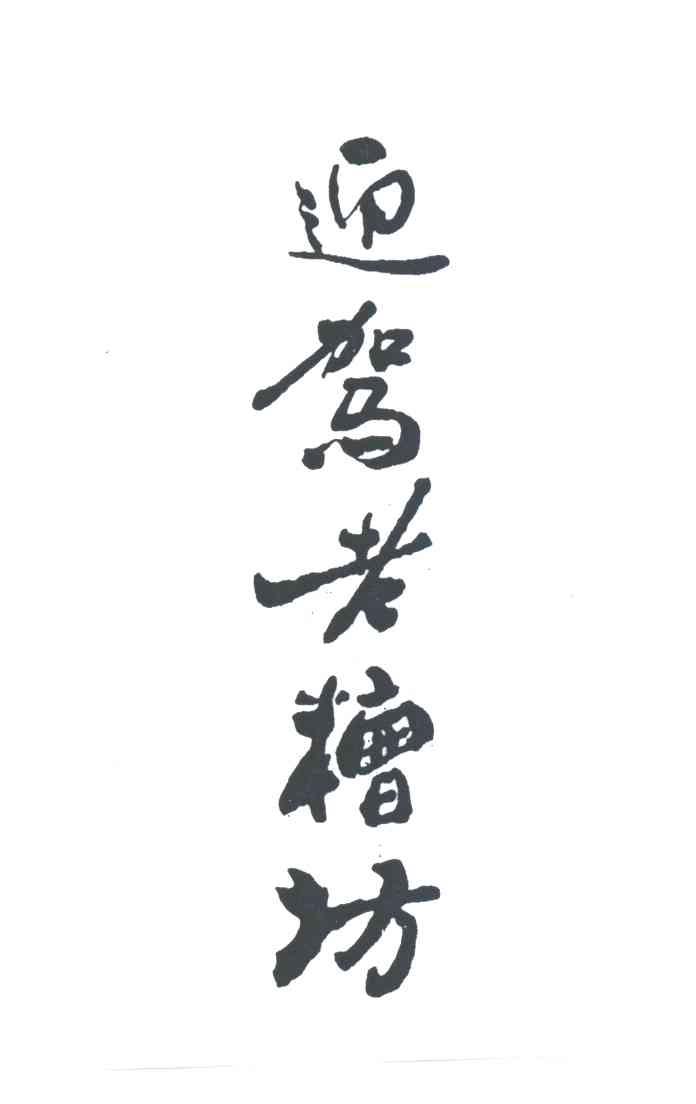 迎驾老糟坊